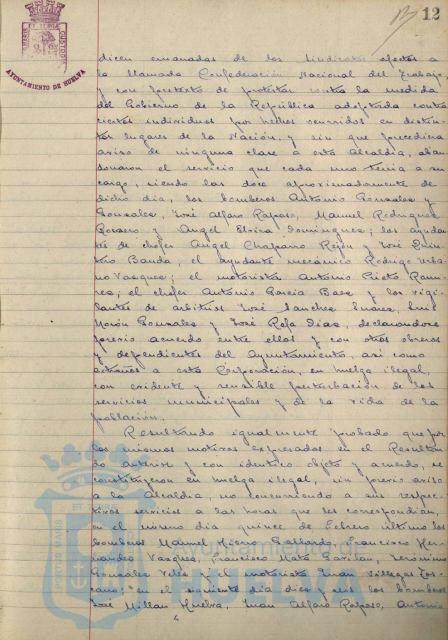 12
AYUNTAMIENTO DE HUELVA
dicen emanadas de los Sindicatos afectos a
la llamada Confederación Nacional del Trabajo,
y con pretexto de protestar contra la medida
del Gobierno de la República adoptada contra
ciertos individuos por hechos ocurridos en distin-
tos lugares de la Nación, y sin que precediera
aviso de ninguna clase a esta Alcaldía, aban-
donaron el servicio que cada uno tenía a su
cargo, siendo las doce aproximadamente de
dicho día, los bomberos Antonio Gonzalez y
Gonzalez, José Alfaro Raposo, Manuel Rodriguez
y Angel Dominguez; los ayudan-
tes de chofer Angel Chaparro y José
Banda; el ayudante mecánico Rodrigo Urba-
no Vazquez; el motorista Antonio Prieto Rami-
rez; el chofer Antonio Garcia Baez y los vigi-
lantes de arbitrios José Sanchez Suarez, Luis
Morón Gonzalez y José Rofa Diaz, declarandose
previo acuerdo entre ellos y con otros obreros
y dependientes del Ayuntamiento, así como
extraños a esta Corporación, en huelga ilegal,
con evidente y sensible perturbación de los
servicios municipales y de la vida de la
población.
Resultando igualmente probado que por
los mismos motivos expresados en el Resultan-
do anterior y con identico objeto y acuerdo, se
constituyeron en huelga ilegal, sin previo aviso
a la Alcaldía, no concurriendo a sus respec-
tivos servicios a las horas que les correspondían,
en el mismo día quince de Febrero último los
bomberos Manuel Hierro Gallardo, Francisco Her-
nandez Vazquez, Francisco Mata Gavilan, Jerónimo
Gonzalez Velez y el motorista Juan Villegas Loz-
cano; en el siguiente día diez y seis los bomberos
José Millan Huelva, Juan Alfaro Raposo, Antonio
Ayuntamiento de
HUELVA